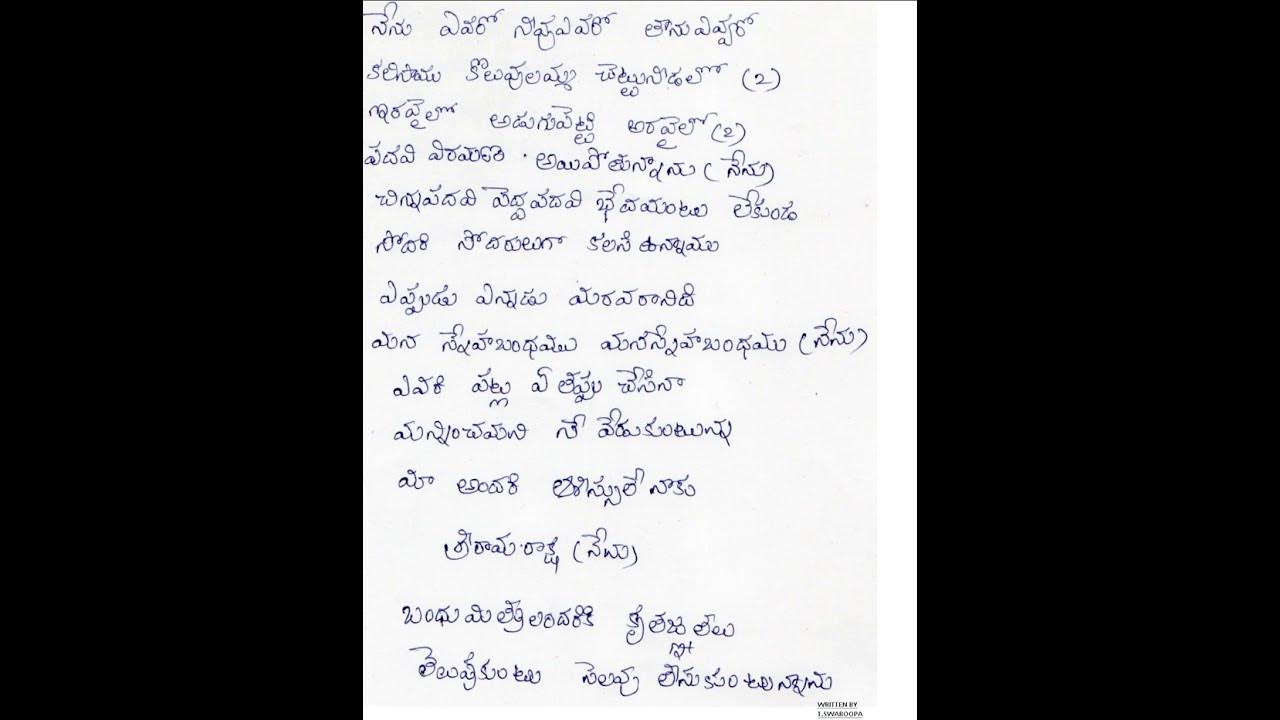 నేను ఎవరో నీవుఎవరో తానుఎవ్వరో
కలిసాము కొలువులమ్మ చెట్టునీడలో (2)
ఇరవైలో అడుగుపెట్టి అరవైలో (2)
పదవి విరమణ అయిపోతున్నాను (నేను)
చిన్నపదవి పెద్దపదవి భేదమంటు లేకుండ
సోదరి సోదరులుగా కలసి ఉన్నాము
ఎప్పుడు ఎన్నడు మరవరానిది
మన స్నేహబంధము మనస్నేహబంధము (నేను)
ఎవరి పట్ల ఏ తప్పు చేసినా
మన్నించమని నే వేడుకుంటున్న
మీ అందరి ఆశీస్సులే నాకు
శ్రీరామ రక్ష (నేను)
బంధుమిత్రులందరికి కృతజ్ఞతలు
తెలుపుకుంటు సెలవు తీసుకుంటున్నాను
WRITTEN BY
T.SWAROOPA